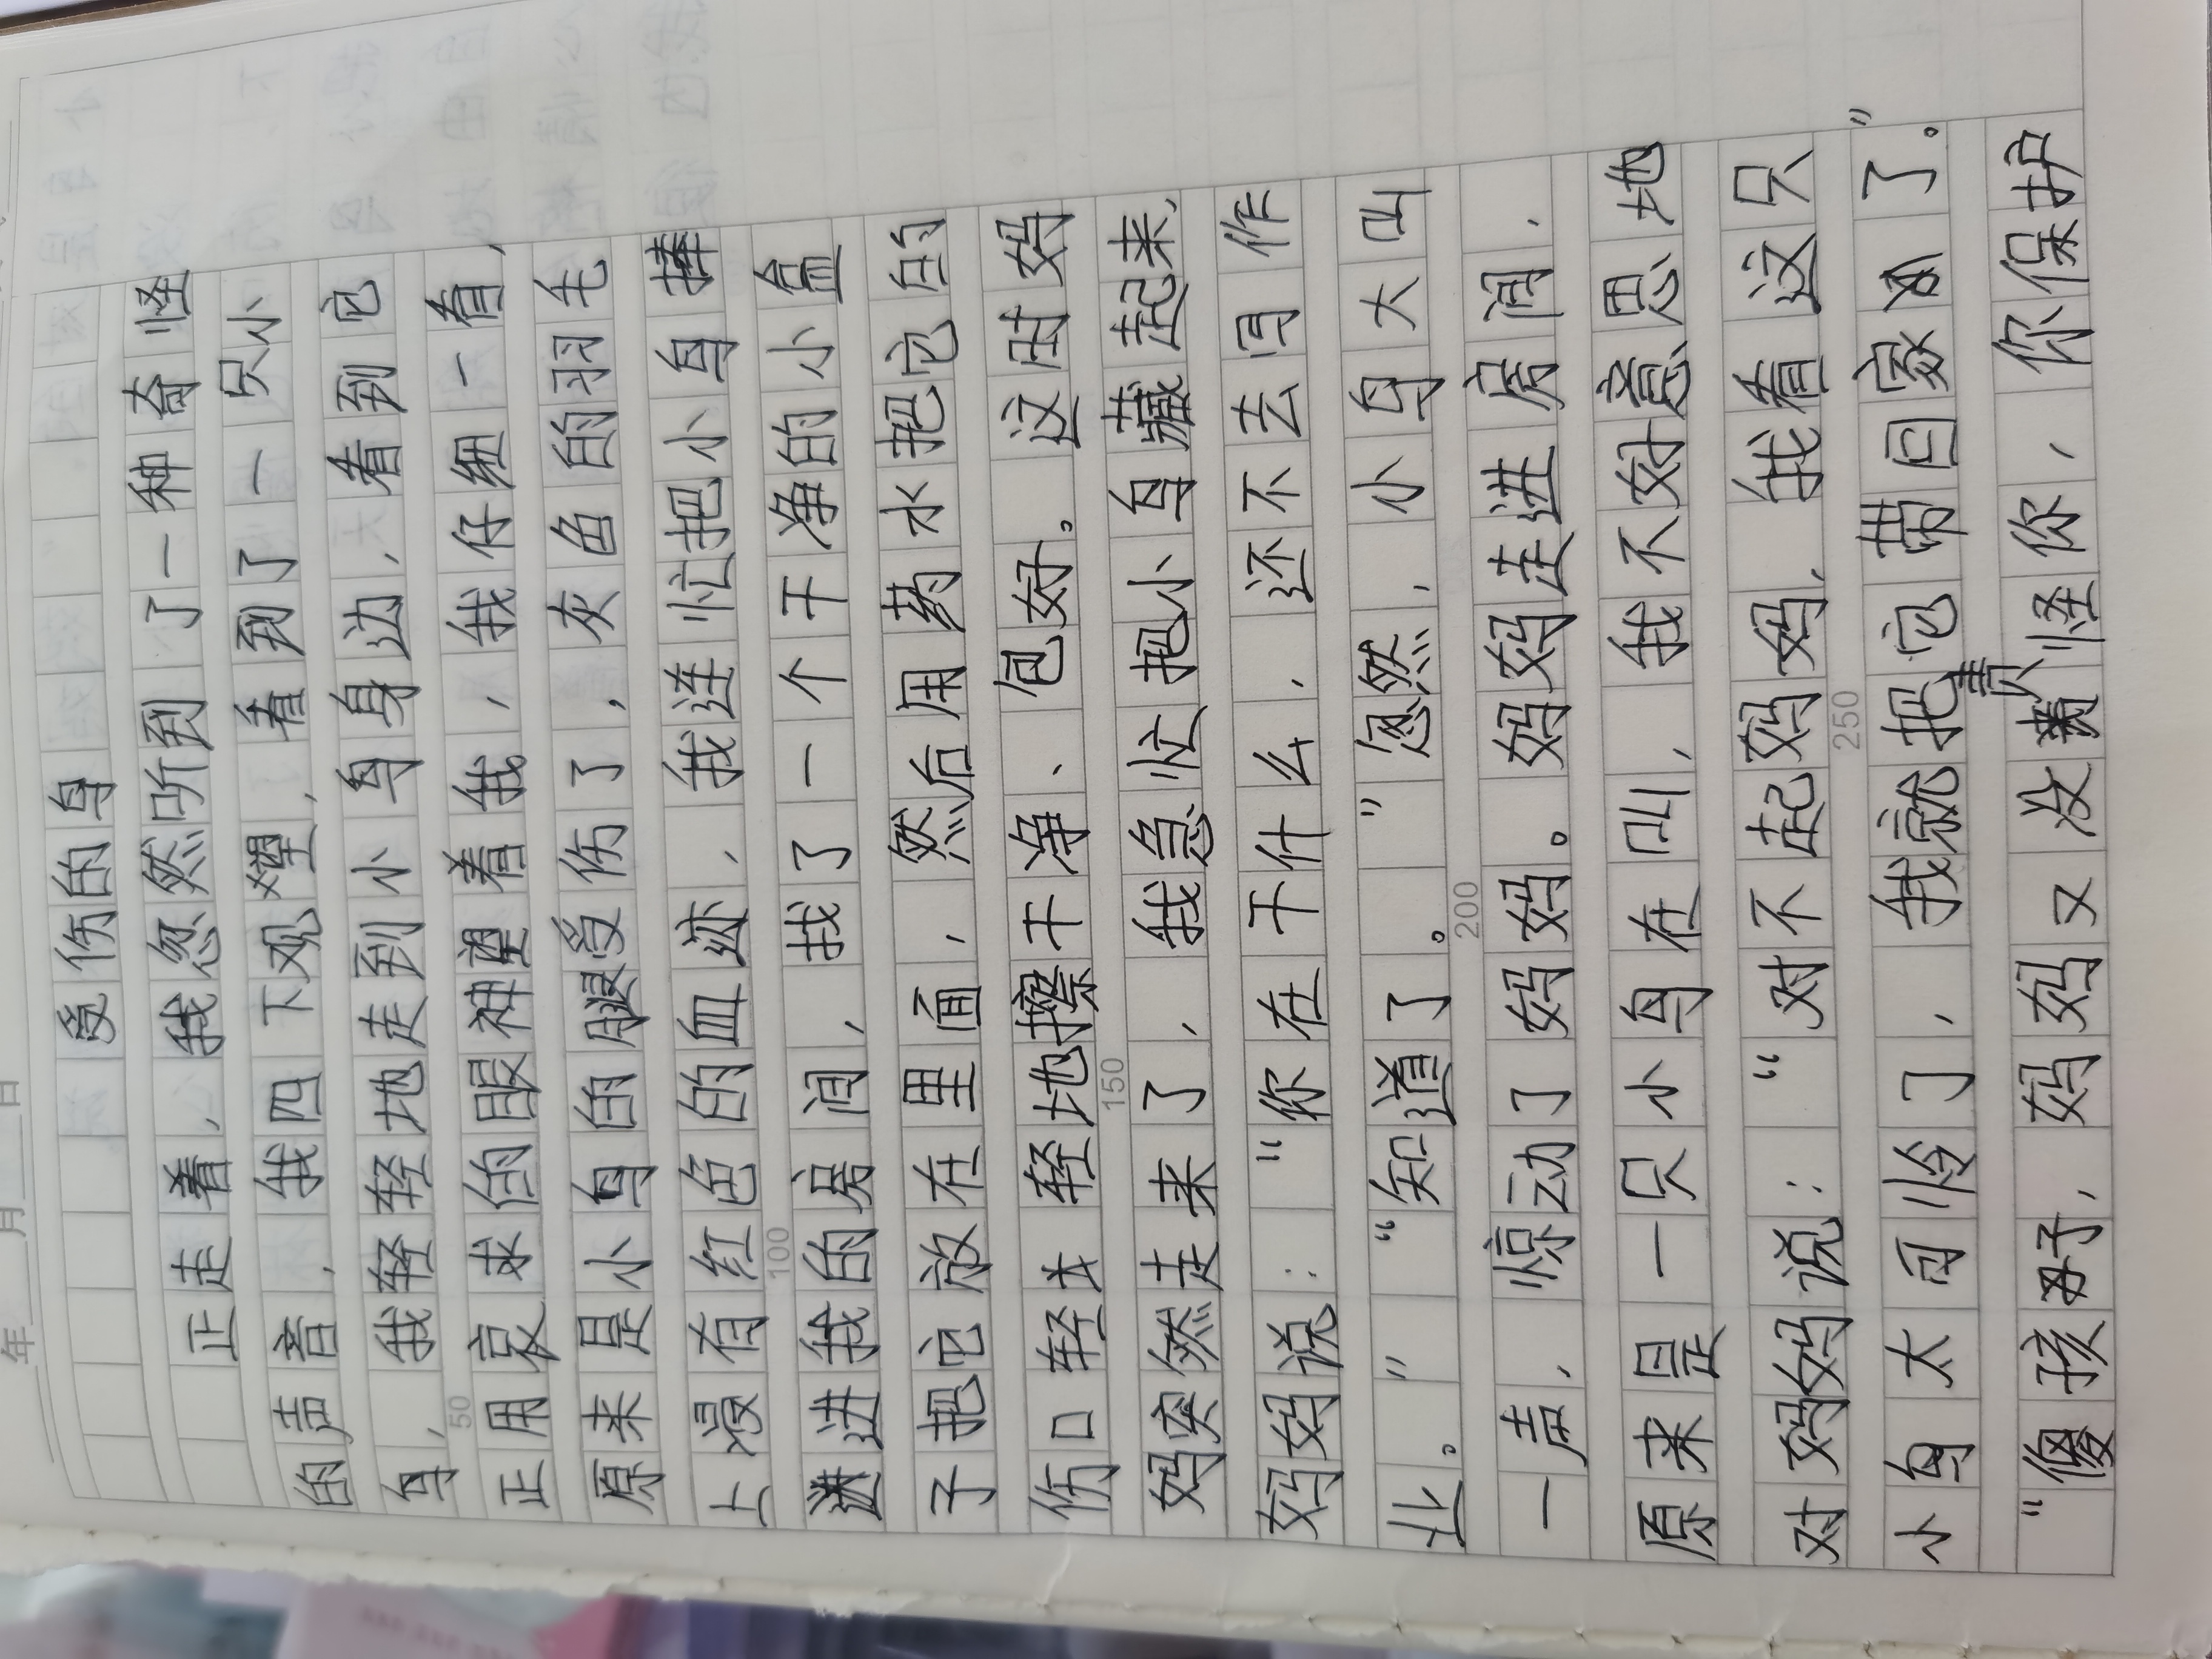 年 月 日
受伤的鸟
正走着,我忽然听到了一种奇怪
的声音,我四下观望,看到了一只小
鸟,我轻轻地走到小鸟身边,看到它
正用哀求的眼神望着我,我仔细一看,
原来是小鸟的腿受伤了,灰色的羽毛
上浸有红色的血迹,我连忙把小鸟捧
进进我的房间,找了一个干净的小盒
子把它放在里面,然后用药水把它的
伤口轻轻地擦干净、包好。这时妈
妈突然走来了,我急忙把小鸟藏起来,
妈妈说:“你在干什么,还不去写作
业。”“知道了。”忽然,小鸟大叫
一声,惊动了妈妈。妈妈走进房间,
原来是一只小鸟在叫,我不好意思地
对妈妈说:“对不起妈妈,我看这只
小鸟太可怜了,我就把它带回家了。”
“傻孩子,妈妈又没责怪你,你保护
50
100
150
200
250